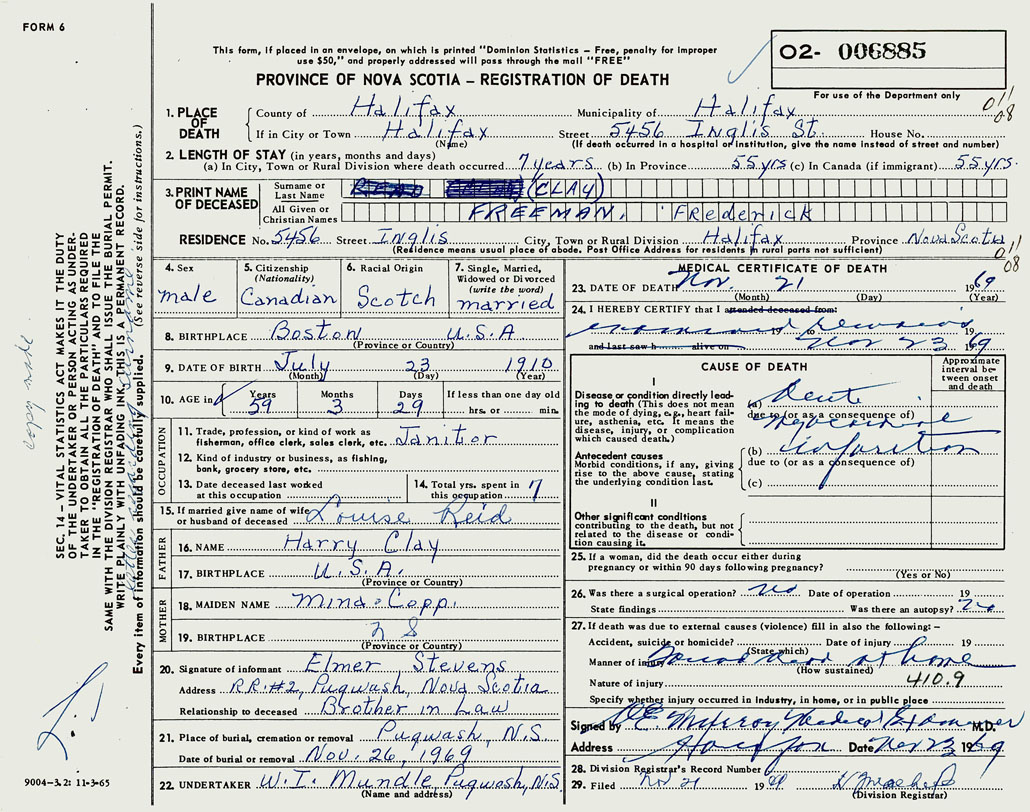 FORM 6
This form, if placed in an envelope, on which is printed "Dominion Statistics – Free, penalty for improper
use $50," and properly addressed will pass through the mail "FREE"
PROVINCE OF NOVA SCOTIA – REGISTRATION OF DEATH
O2- 006885
For use of the Department only
011
08
1. PLACE OF DEATH
County of Halifax Municipality of Halifax
If in City or Town Halifax Street 5456 Inglis St. House No.
(Name) (If death occurred in a hospital or institution, give the name instead of street and number)
2. LENGTH OF STAY (in years, months and days)
(a) In City, Town or Rural Division where death occurred 7 years (b) In Province 55 yrs (c) In Canada (if immigrant) 55 yrs.
3. PRINT NAME OF DECEASED
Surname or Last Name (CLAY)
All Given or Christian Names FREEMAN, Frederick
RESIDENCE No. 5456 Street Inglis City, Town or Rural Division Halifax Province Nova Scotia
(Residence means usual place of abode. Post Office Address for residents in rural parts not sufficient)
011
08
4. Sex male
5. Citizenship (Nationality) Canadian
6. Racial Origin Scotch
7. Single, Married, Widowed or Divorced (write the word) married
8. BIRTHPLACE Boston U.S.A
(Province or Country)
9. DATE OF BIRTH July 23 1910
(Month) (Day) (Year)
10. AGE in Years 59 Months 3 Days 29 If less than one day old hrs. or min.
OCCUPATION
11. Trade, profession, or kind of work as
fisherman, office clerk, sales clerk, etc. Janitor
12. Kind of industry or business, as fishing,
bank, grocery store, etc.
13. Date deceased last worked
at this occupation
14. Total yrs. spent in
this occupation 7
15. If married give name of wife
or husband of deceased Louise Reid
FATHER
16. NAME Harry Clay
17. BIRTHPLACE U.S.A.
(Province or Country)
MOTHER
18. MAIDEN NAME Mind Copp.
19. BIRTHPLACE N S
(Province or Country)
20. Signature of informant Elmer Stevens
Address R.R.#2, Pugwash, Nova Scotia
Relationship to deceased Brother in Law
21. Place of burial, cremation or removal Pugwash, N.S
Date of burial or removal Nov. 26, 1969
22. UNDERTAKER W. I. Mundle Pugwash, N.S.
(Name and address)
MEDICAL CERTIFICATE OF DEATH
23. DATE OF DEATH Nov. 21 1969
(Month) (Day) (Year)
24. I HEREBY CERTIFY that I attended deceased from:
examined 19 to remains 19
and last saw h alive on Nov 23 1969
CAUSE OF DEATH
Approximate interval between onset and death
I
Disease or condition directly leading to death (This does not mean the mode of dying, e.g., heart failure, asthenia, etc. It means the disease, injury, or complication which caused death.)
(a) Acute
due to (or as a consequence of)
myocardial
Antecedent causes
Morbid conditions, if any, giving rise to the above cause, stating the underlying condition last.
(b) infarction
due to (or as a consequence of)
(c)
II
Other significant conditions
contributing to the death, but not related to the disease or condition causing it.
25. If a woman, did the death occur either during
pregnancy or within 90 days following pregnancy?
(Yes or No)
26. Was there a surgical operation? no Date of operation 19
State findings Was there an autopsy? no
27. If death was due to external causes (violence) fill in also the following: –
Accident, suicide or homicide? Date of injury 19
(State which)
Manner of injury found dead at home
(How sustained)
Nature of injury 410.9
Specify whether injury occurred in industry, in home, or in public place
Signed by Medical Examiner M.D.
Address Halifax Date Nov 23 1969
28. Division Registrar's Record Number
29. Filed 19
(Division Registrar)
SEC. 14 – VITAL STATISTICS ACT MAKES IT THE DUTY
OF THE UNDERTAKER OR PERSON ACTING AS UNDER-
TAKER TO OBTAIN ALL THE PARTICULARS REQUIRED
IN THE "REGISTRATION OF DEATH" AND TO FILE THE
SAME WITH THE DIVISION REGISTRAR WHO SHALL ISSUE THE BURIAL PERMIT.
WRITE PLAINLY WITH UNFADING INK, THIS IS A PERMANENT RECORD.
Every item of information should be carefully supplied. (See reverse side for instructions.)
copy made
9004-3.2: 11-3-65